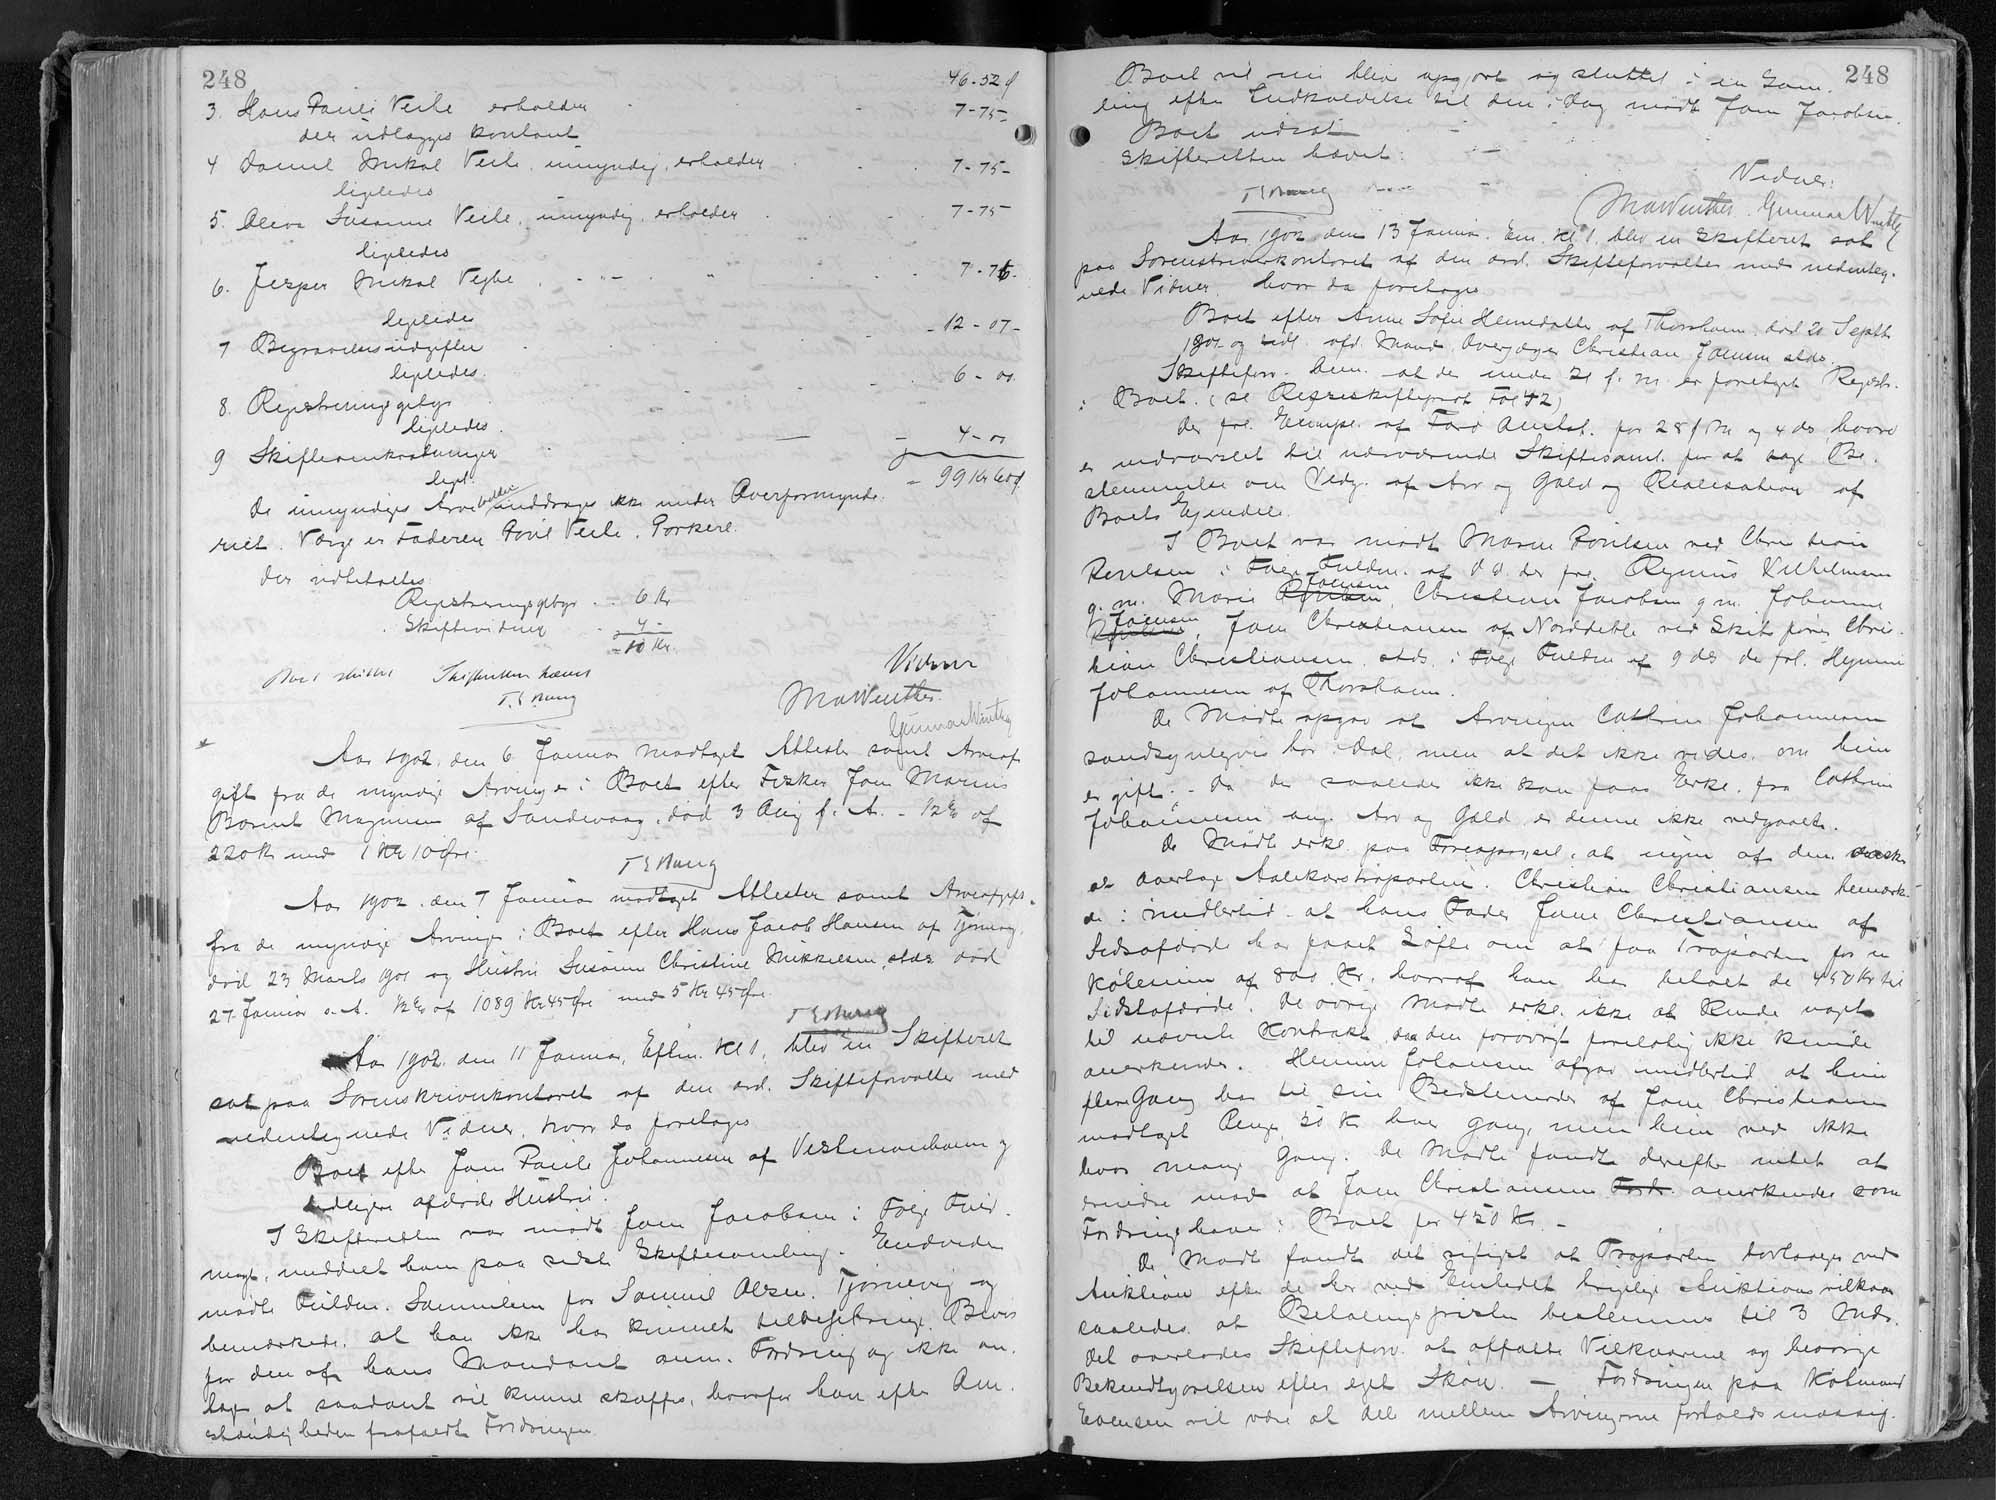 248
46-52 ø
3. Hans Pauli Veile erholder - 7-75-
der udlægges kontant
4 Daniel Mikal Veile, umyndig, erholder 7-75-
ligeledes
5. Oleva Susanne Veile, umyndig, erholder 7-75
ligeledes
6. Jesper Mikal Vejhe 7-76-
ligeledes
7 Begravelsesudgifter -12-07-
ligeledes.
8. Registreringsgebyr 6-00
ligeledes.
9 Skifteomkostninger 4-00
ligel. - 99 Kr 60 ø
De umyndiges Arvelodder inddrages ikke under Overformynde-
riet. Værge er Faderen Povl Veile, Porkere.
Der udbetaltes
Registreringsgebyr - 6 Kr
Skiftevidner - 4-
- 10 Kr.
Boet sluttet Skifteretten hævet
Vidner
MaWinther.
Gunnar Winther
Aar 1902, den 6 Januar modtaget Attester samt Arveaf
gift fra de myndige Arvinger i Boet efter Fisker Jom Marius
Magnussen af Sandevaag, død 3 Aug f. A. - 1/2 % af
220 Kr med 1 Kr 10 Øre.
Aar 1902, den 7 Januar modtaget Attester samt Arveafgift
fra de myndige Arvinger i Boet efter Hans Jacob Hansen af
død 23 Marts 1901 og Hustru Susanne Christine Mikkelsen, stds død
27 Januar s. A. 1/2 % af 1089 Kr 45 Øre med 5 Kr 45 Øre.
Aar 1902 den 11 Januar, Eftm. Kl 1, blev en Skifteret
sat paa Sorenskriverkontoret af den ord. Skifteforvalter med
nedentegnede Vidner, hvor da foretoges
Boet efter Jom Pauli Johannesen af Vestmanhavn og
tidligere afdøde Hustru.
I Skifteretten var mødt Jom Jacobsen i Følge Fuld-
magt, meddelt ham paa sidste Skiftesamling. Endvidere
mødte Fuldm. Samuelsen for Samuel Olsen, Tjørnevig og
bemærkede, at han ikke har kunnet tilvejebringe Bevis
for den af hans Mandant anm. Fordring og ikke an-
tager at saadant vil kunne skaffes, hvorfor han efter Om-
stændigheden frafaldt Fordringen.
248
Boet vil nu blive opgjort og sluttet i en Sam-
ling efter Indkaldelse til den i Dag mødte Jom Jacobsen.
Boet udsat
Skifteretten hævet.
Vidner:
MaWinther. Gunnar Winther
Aar 1902 den 13 Januar Em. Kl 1, blev en Skifteret sat
paa Sorenskriverkontoret af den ord. Skifteforvalter med nedenteg-
nede Vidner, hvor da foretoges
Boet efter Anne Sofie Heinedatter af Thorshavn, død 20 Septb
1901 og tidl. afd. Mand, Overjæger Christian Joensen stds.
Skifteforv. bem. at der under 21 f. M. er foretaget Registr.
i Boet. (se Fol 42)
Der frl. af Færø Amtst. for 28 f M og 4 ds, hvori
er indvarslet til nærværende Skiftesaml. for at tage Be-
stemmelse om Vedg. af Arv og Gæld og Realisation af
Boets Ejendele.
I Boet var mødt Maren Poulsen ved Christian
Poulsen i Følge Fuldm. af D. D. der frl. Rasmus Vilhelmsen
g. m. Marie Joensen, Christian Jacobsen g m. Johanne
Joensen, Jom Christiansen af Norddeble ved Skibsfører Chri-
stian Christiansen, stds. i Følge Fuldm af 9 ds de frl.
Johannesen af Thorshavn.
De Mødte opgav at Arvingen Cathrine Johannesen
sandsynligvis bor i Dal, men at det ikke vides, om hun
er gift. - Da der saaledes ikke kan faas Erkl. fra Cathrine
Johannesen ang. Arv og Gæld er denne ikke vedgaaet.
De Mødte erkl. paa Forespørsel, at ingen af dem ønsker
at overtage Christian Christiansen bemærk-
ede imidlertid at hans Fader Jom Christiansen af
Sidstafdøde har faaet Løfte om at faa Traparten for en
Købesum af 800 Kr, hvoraf han har betalt de 450 Kr til
Sidstafdøde. De øvrige Mødte erkl. ikke at kende noget
til nævnte Kontrakt, som den forøvrigt foreløbig ikke kunde
anerkendes. opgav imidlertid at hun
flere Gang har til sin Bedstemoder af Jom Christiansen
modtaget Penge, 50 Kr hver Gang, men hun ved ikke
hvor mange Gang. De Mødte fandt derefter intet at
erindre mod at Jom Christiansen anerkendes som
Fordringshaver i Boet for 450 Kr. -
De Mødte fandt det rigtigst at Traparten bortsælges ved
Auktion efter de her ved Embedet brugelige Auktionsvilkaar
saaledes at Betalingsfristen bestemmes til 3 Mdr.
Det overlodes Skifteforv. at affatte Vilkaarene og besørge
Bekendtgørelsen efter eget Skøn. - Fordringen paa Købmand
Evensen vil være at dele mellem Arvingerne forholdsmæssig.